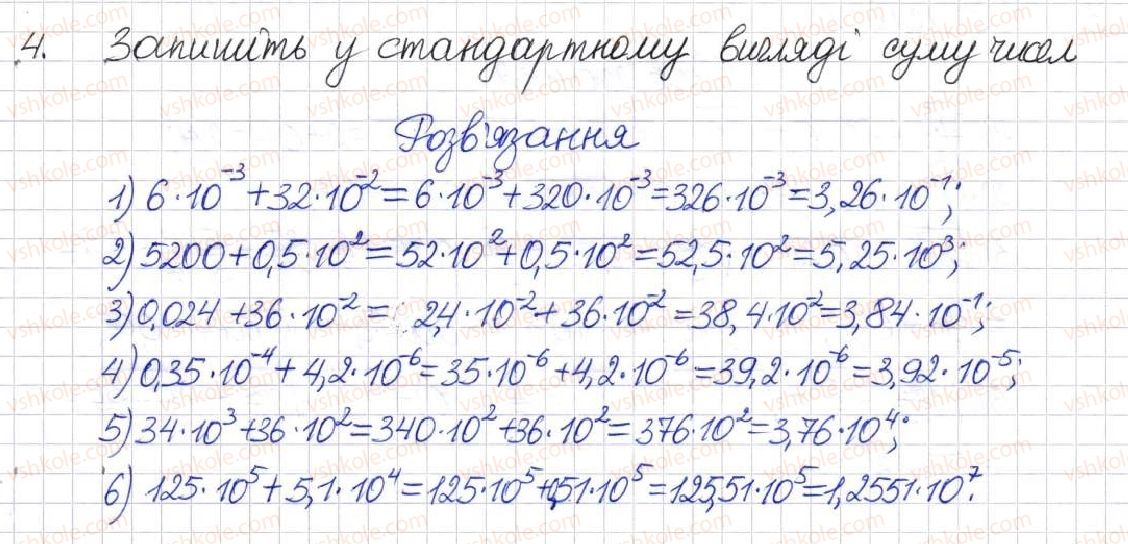 4. Запишіть у стандартному вигляді суму чисел
Розв'язання
1) 6·10⁻³+32·10⁻²=6·10⁻³+320·10⁻³=326·10⁻³=3,26·10⁻¹;
2) 5200+0,5·10²=52·10²+0,5·10²=52,5·10²=5,25·10³;
3) 0,024+36·10⁻²=2,4·10⁻²+36·10⁻²=38,4·10⁻²=3,84·10⁻¹;
4) 0,35·10⁻⁴+4,2·10⁻⁶=35·10⁻⁶+4,2·10⁻⁶=39,2·10⁻⁶=3,92·10⁻⁵;
5) 34·10³+36·10²=340·10²+36·10²=376·10²=3,76·10⁴;
6) 125·10⁵+5,1·10⁴=125·10⁵+0,51·10⁵=125,51·10⁵=1,2551·10⁷.